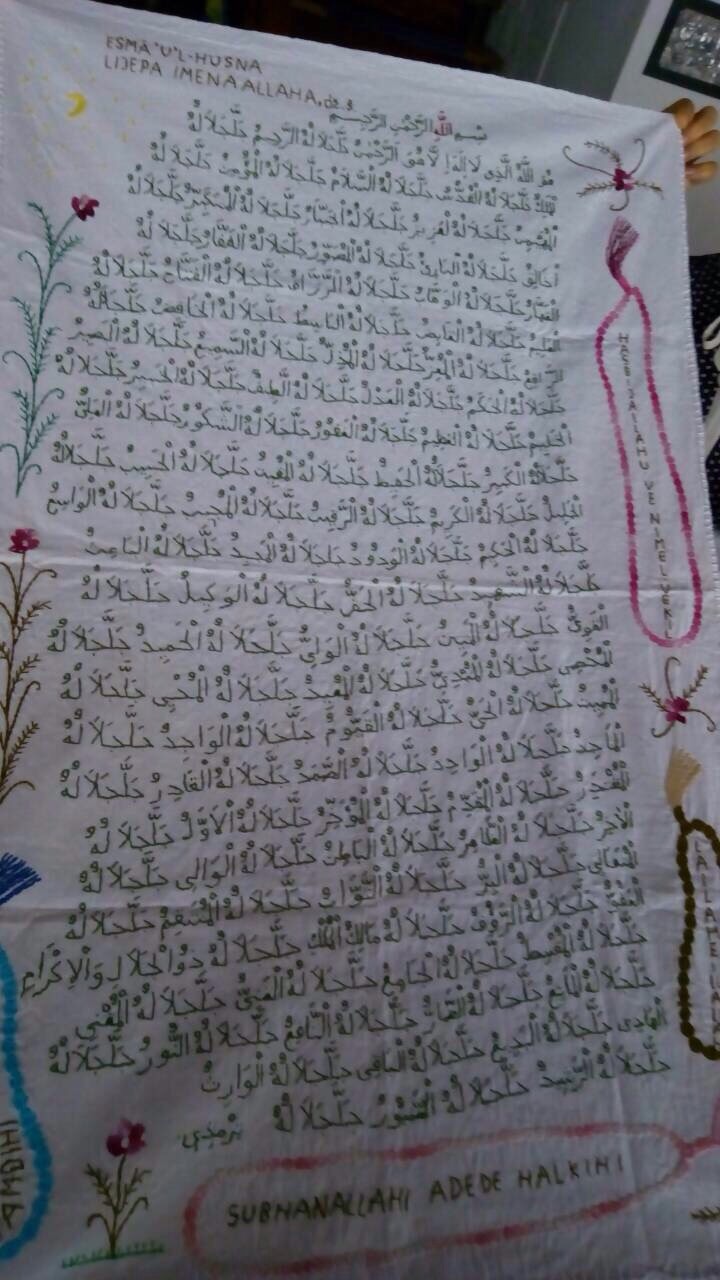 ESMÃ'U'L-HUSNA
LIJEPA IMENA ALLAHA, dž.š
بِسْمِ اللَّهِ الرَّحْمٰنِ الرَّحِيمِ
هُوَ اللَّهُ الَّذِى لَا اِلٰهَ اِلَّا هُوَ اَلرَّحْمٰنُ جَلَّجَلَالَهُ الرَّحِيمُ جَلَّجَلَالَهُ
جَلَّجَلَالَهُ الْقُدُّسُ جَلَّجَلَالَهُ السَّلَامُ جَلَّجَلَالَهُ الْمُؤْمِنُ جَلَّجَلَالَهُ
جَلَّجَلَالَهُ الْعَزِيزُ جَلَّجَلَالَهُ جَلَّجَلَالَهُ الْمُتَكَبِّرُ جَلَّجَلَالَهُ
جَلَّجَلَالَهُ الْبَارِئُ جَلَّجَلَالَهُ الْمُصَوِّرُ جَلَّجَلَالَهُ الْغَفَّارُ جَلَّجَلَالَهُ
جَلَّجَلَالَهُ الْوَهَّابُ جَلَّجَلَالَهُ الرَّزَّاقُ جَلَّجَلَالَهُ الْفَتَّاحُ جَلَّجَلَالَهُ
جَلَّجَلَالَهُ الْقَابِضُ جَلَّجَلَالَهُ الْبَاسِطُ جَلَّجَلَالَهُ الْخَافِضُ جَلَّجَلَالَهُ
جَلَّجَلَالَهُ الْمُعِزُّ جَلَّجَلَالَهُ الْمُذِلُّ جَلَّجَلَالَهُ السَّمِيعُ جَلَّجَلَالَهُ الْبَصِيرُ
جَلَّجَلَالَهُ الْحَكَمُ جَلَّجَلَالَهُ الْعَدْلُ جَلَّجَلَالَهُ الَّطِفُ جَلَّجَلَالَهُ الْخَبِيرُ جَلَّجَلَالَهُ
الْحَلِيمُ جَلَّجَلَالَهُ الْعَظِيمُ جَلَّجَلَالَهُ الْغَفُورُ جَلَّجَلَالَهُ الشَّكُورُ جَلَّجَلَالَهُ الْعَلِىُّ
جَلَّجَلَالَهُ الْكَبِيرُ جَلَّجَلَالَهُ الْحَفِيظُ جَلَّجَلَالَهُ الْمُقِيتُ جَلَّجَلَالَهُ الْحَسِيبُ جَلَّجَلَالَهُ
الْجَلِيلُ جَلَّجَلَالَهُ الْكَرِيمُ جَلَّجَلَالَهُ الرَّقِيبُ جَلَّجَلَالَهُ الْمُجِيبُ جَلَّجَلَالَهُ الْوَاسِعُ
جَلَّجَلَالَهُ الْحَكِيمُ جَلَّجَلَالَهُ الْوَدُودُ جَلَّجَلَالَهُ الْمَجِيدُ جَلَّجَلَالَهُ الْبَاعِثُ
جَلَّجَلَالَهُ الشَّهِيدُ جَلَّجَلَالَهُ الْحَقُّ جَلَّجَلَالَهُ الْوَكِيلُ جَلَّجَلَالَهُ
الْقَوِىُّ جَلَّجَلَالَهُ الْمَتِينُ جَلَّجَلَالَهُ الْوَلِىُّ جَلَّجَلَالَهُ الْحَمِيدُ جَلَّجَلَالَهُ
الْمُحْصِى جَلَّجَلَالَهُ الْمُبْدِئُ جَلَّجَلَالَهُ الْمُعِيدُ جَلَّجَلَالَهُ الْمُحْيِى جَلَّجَلَالَهُ
الْمُمِيتُ جَلَّجَلَالَهُ الْحَىُّ جَلَّجَلَالَهُ الْقَيُّومُ جَلَّجَلَالَهُ الْوَاجِدُ جَلَّجَلَالَهُ
الْمَاجِدُ جَلَّجَلَالَهُ الْوَاحِدُ جَلَّجَلَالَهُ الصَّمَدُ جَلَّجَلَالَهُ الْقَادِرُ جَلَّجَلَالَهُ
الْمُقْتَدِرُ جَلَّجَلَالَهُ الْمُقَدِّمُ جَلَّجَلَالَهُ الْمُؤَخِّرُ جَلَّجَلَالَهُ الْاَوَّلُ جَلَّجَلَالَهُ
الْاٰخِرُ جَلَّجَلَالَهُ الظَّاهِرُ جَلَّجَلَالَهُ الْبَاطِنُ جَلَّجَلَالَهُ الْوَالِى جَلَّجَلَالَهُ
الْمُتَعَالِى جَلَّجَلَالَهُ الْبَرُّ جَلَّجَلَالَهُ التَّوَّابُ جَلَّجَلَالَهُ الْمُنْتَقِمُ جَلَّجَلَالَهُ
الْعَفُوُّ جَلَّجَلَالَهُ الرَّؤُفُ جَلَّجَلَالَهُ مَالِكُ الْمُلْكِ جَلَّجَلَالَهُ ذُوالْجَلَالِ وَالْاِكْرَامِ
جَلَّجَلَالَهُ الْمُقْسِطُ جَلَّجَلَالَهُ الْجَامِعُ جَلَّجَلَالَهُ الْغَنِىُّ جَلَّجَلَالَهُ الْمُغْنِى
جَلَّجَلَالَهُ الْمَانِعُ جَلَّجَلَالَهُ الضَّارُّ جَلَّجَلَالَهُ النَّافِعُ جَلَّجَلَالَهُ النُّورُ جَلَّجَلَالَهُ
الْهَادِى جَلَّجَلَالَهُ الْبَدِيعُ جَلَّجَلَالَهُ الْبَاقِى جَلَّجَلَالَهُ الْوَارِثُ
جَلَّجَلَالَهُ الرَّشِيدُ جَلَّجَلَالَهُ الصَّبُورُ جَلَّجَلَالَهُ
تِرْمِذِى
VE NIMEL VEKIL
LA ILAHE
AMDIHI
SUBHANALLAHI ADEDE HALKIHI